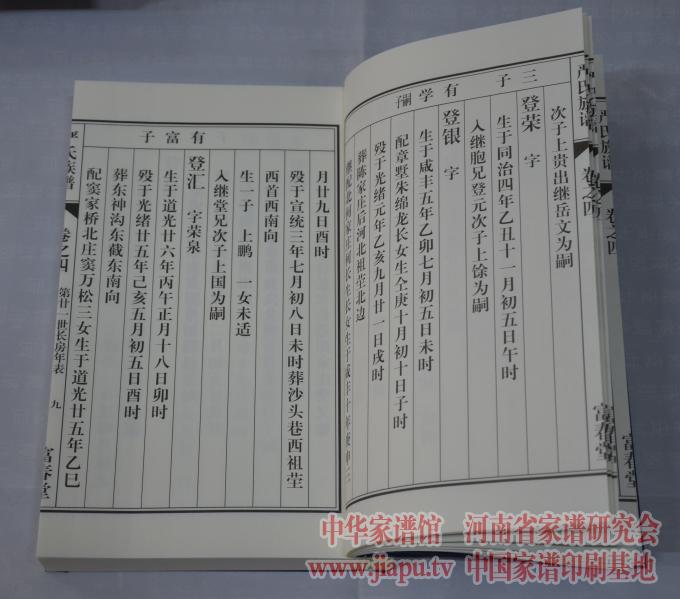 严氏族谱
卷之四
富春堂
次子上贵出继岳文为嗣
三子
登荣 字
生于同治四年乙丑十一月初五日午时
入继胞兄登元次子上馀为嗣
有学嗣子
登银 字
生于咸丰五年乙卯七月初五日未时
配章墅朱绵龙长女生仝庚十月初十日子时
殁于光绪元年乙亥九月廿一日戌时
葬陈家庄后河北祖茔北边
月廿九日酉时
殁于宣统三年七月初八日未时葬沙头巷西祖茔
酉首西南向
生一子 上鹏 一女未适
入继堂兄次子上国为嗣
有富子
登汇 字荣泉
生于道光廿六年丙午正月十八日卯时
殁于光绪廿五年己亥五月初五日酉时
葬东神沟东截东南向
配窦家桥北庄窦万松三女生于道光廿五年乙巳
氏族谱
卷之四
第廿一世长房年表
九
富春堂
中华家谱馆 河南省家谱研究会
www.jiapu.tv 中国家谱印刷基地